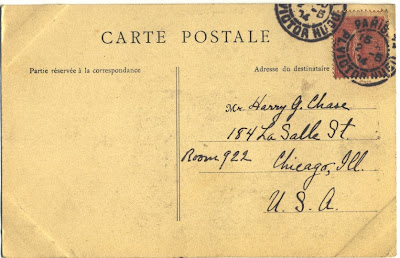 CARTE POSTALE
Partie réservée à la correspondance
Adresse du destinataire
Mr. Harry G. Chase
184 La Salle St.
Room 922
Chicago, Ill.
U. S. A.
PARIS
VICTOR HUGO